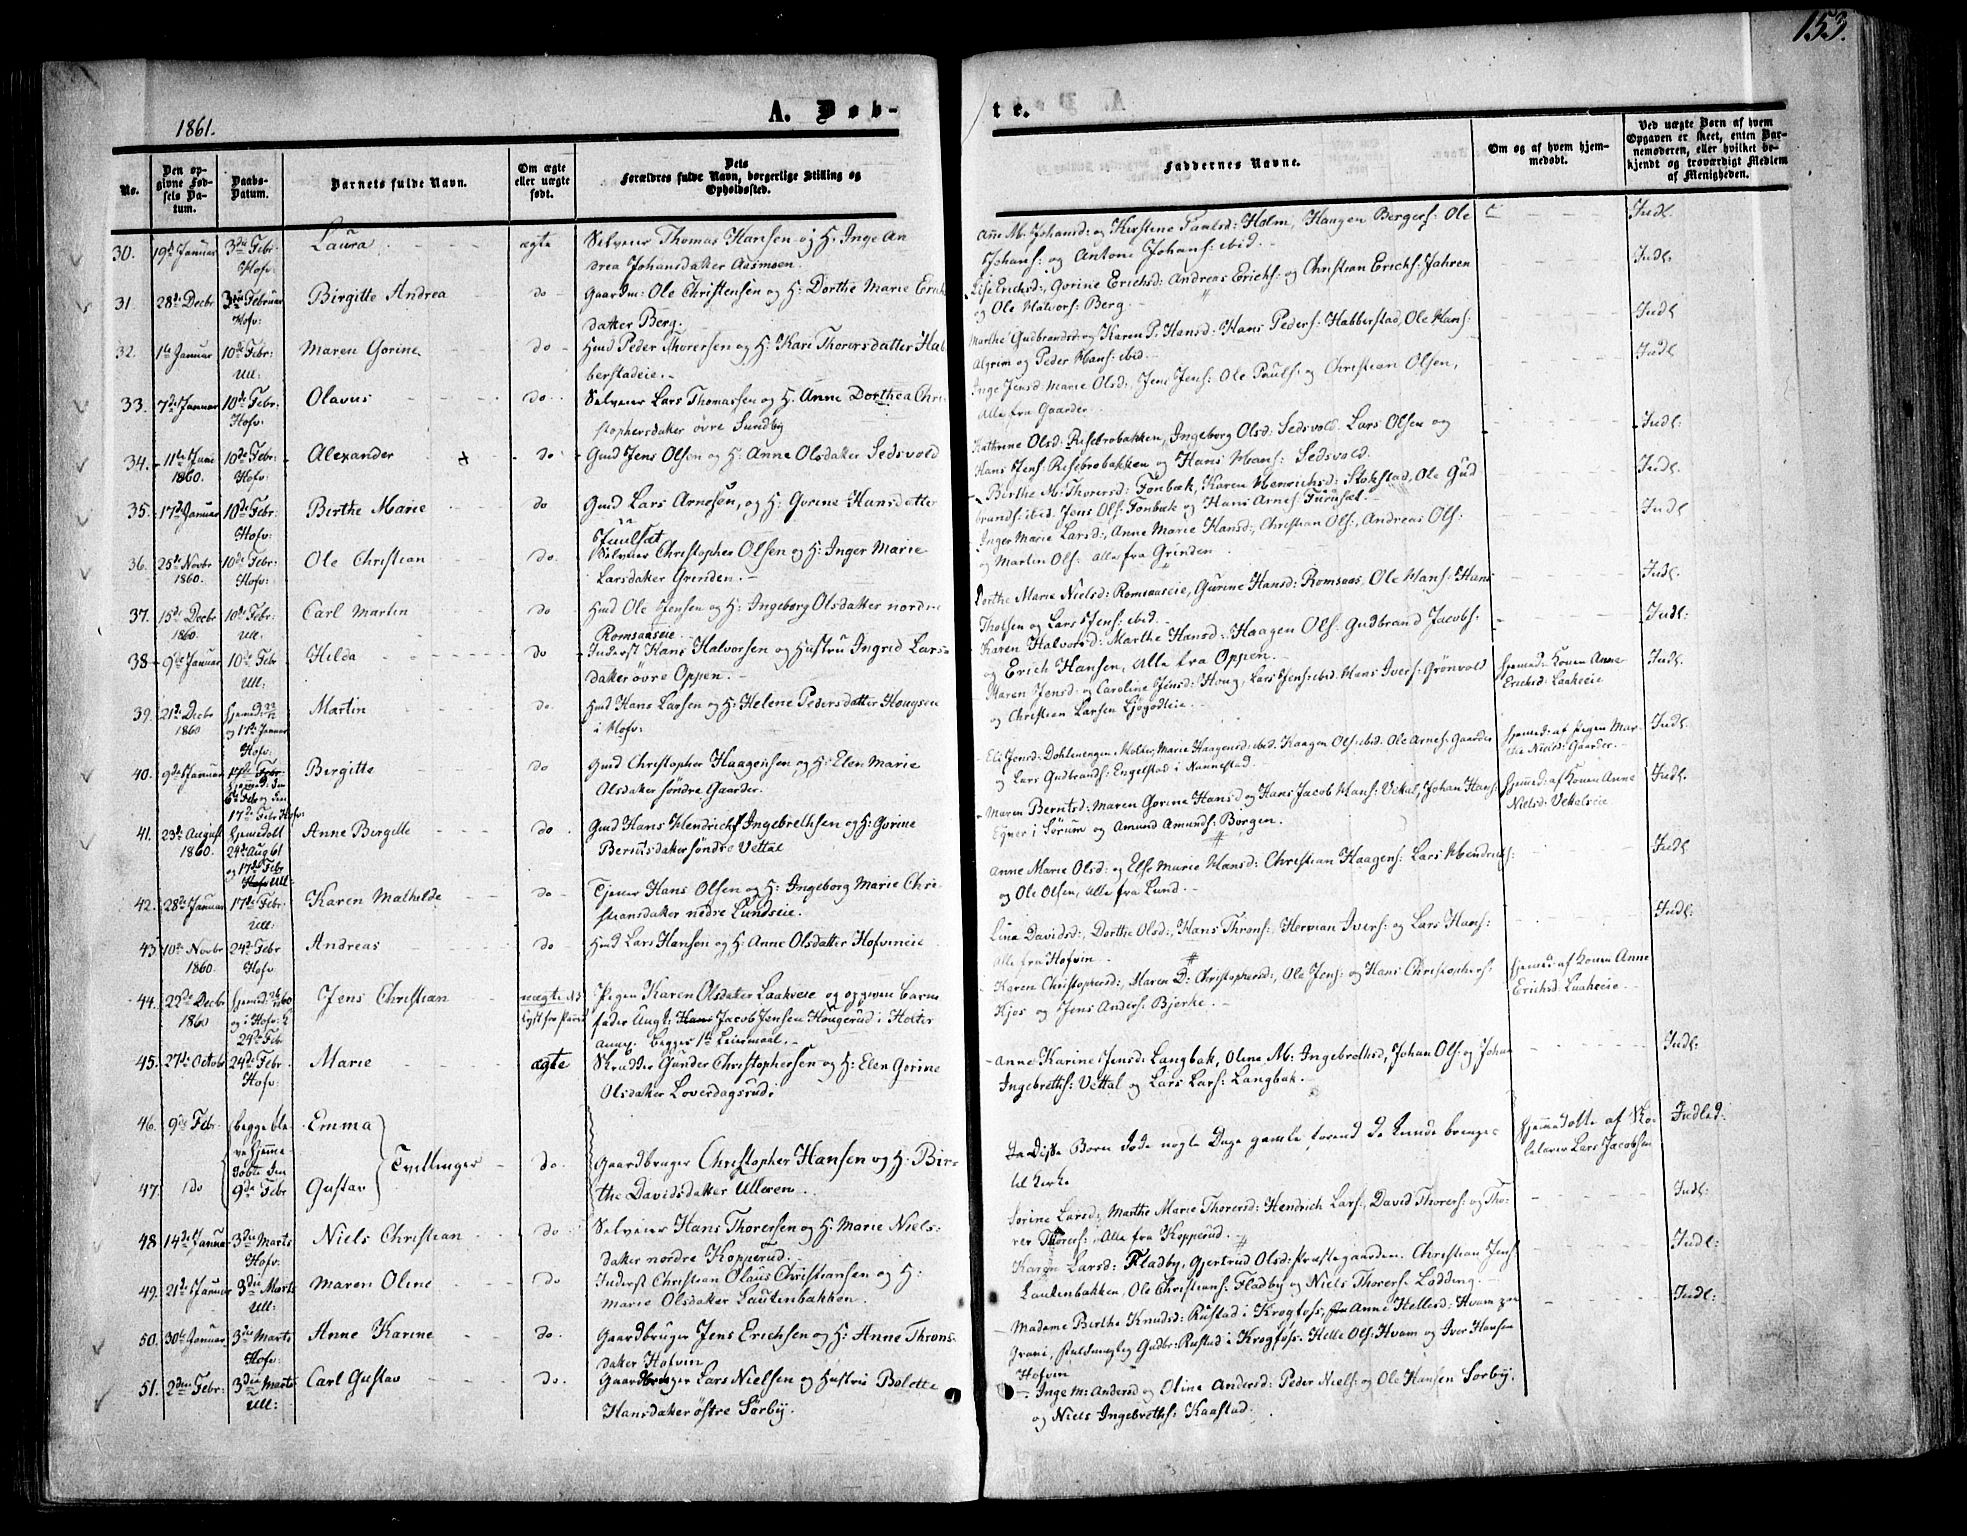 153.
1861.
A. Døb-
te.
No.
Den op-
givne Fød-
sels Da-
tum.
Daabs-
Datum.
Barnets fulde Navn.
Om ægte
eller uægte
født.
Dets
Forældres fulde Navn, borgerlige Stilling og
Opholdssted.
Faddernes Navne.
Om og af hvem hjem-
medøbt.
Ved uægte Børn af hvem
Opgaven er skeet, enten Bar-
nemoderen, eller hvilket be-
kjendt og troværdigt Medlem
af Menigheden.
30. 19de Januar 3die Febr: Hofv: Laura ægte
Selveier Thomas Hansen og H: Inge An
drea Johansdatter Aasmoen.
Ane M. Johansd: og Kirstine Paulsd: Holm, Haagen Bergers: Ole
Johans: og Antone Johans: ibid.
Indl.
31 28de Decbr 3die Februar Hofv: Birgitte Andrea do
Gaardm: Ole Christensen og H: Dorthe Marie Erichs
datter Berg.
Lise Erichsd:, Gorine Erichsd: Andreas Erichs: og Christian Erichs: Jahren
og Ole Halvors: Berg.
Indl
32. 1ste Januar 10de Febr: Ull: Maren Gorine do
Hmd Peder Thorersen og H: Kari Thorersdatter Hab
berstadeie.
Marthe Gudbrandsd: og Karen P. Hansd: Hans Peders: Habberstad, Ole Hans:
Algrim og Peder Hans: ibid.
Indl
33. 7de Januar 10de Febr: Hofv: Olavus do
Selveier Lars Thomassen og H: Anne Dorthea Chri
stophersdatter øvre Sundby
Inge Jensd: Marie Olsd:, Jens Jens: Ole Pauls: og Christian Olsen,
Alle fra Gaarder.
Indl
34. 11te Juni 1860. 10de Febr: Hofv: Alexander + do
Gmd Jens Olsen og H: Anne Olsdatter Sedsvold
Kathrine Olsd: Risebrobakken, Ingeborg Olsd: Sedsvold. Lars Olsen og
Hans Jens: Risebrobakken og Hans Hans: Sedsvold.
Indl:
35. 17de Januar 10de Febr: Hofv: Birthe Marie do
Gmd Lars Arnesen, og H: Gorine Hansdatter
Fuulsat
Birthe M: Thorersd: Fonbæk, Karen Henrichsd: Stokstad, Ole Gud
brands: ibid. Jens Ols: Fonbæk og Hans Arnes:
Indl
36. 25de Novbr 1860. 10de Febr: Hofv: Ole Christian do.
Selveier Christopher Olsen og H: Inger Marie
Larsdatter Grinden.
Inger Marie Larsd:, Anne Marie Hansd:, Christian Ols:, Andreas Ols:
og Martin Ols: alle fra Grinden.
Indl
37. 15de Decbr 1860. 10de Febr: Ull: Carl Martin do
Hmd Ole Jensen og H: Ingeborg Olsdatter nordre
Romsaaseie
Dorthe Marie Niels: Romsaaseie, Gurine Hansd: Romsaas, Ole Hans: Hans
Tholsen og Lars Jens: ibid.
Indl.
38 9de Januar 10de Febr Ull: Hilda do
Inderst Hans Halvorsen og Hustru Ingrid Lars
datter øvre Oppen.
Karen Halvorsd: Marthe Hansd: Haagen Ols: Gudbrand Jacobs:
og Erich Hansen, alle fra Oppen.
Indl:
39. 21de Decbr 1860 hjemmed: 22/12 og 17de Januar Hofv: Martin do.
Hmd Hans Larsen og H: Helene Pedersdatter Hougseie
i Hofv:
Maren Jensd: og Caroline Jensd: Houg, Lars Jens: ibid. Hans Ivers: Grønvold
og Christian Larsen Ljøgodteie.
hjemmed: Konen Anne
Erichsd: Laakeeie
Indl.
40. 9de Januar Hjemmed: den 6te Febr og den 17de Febr Hofv: Birgitte do
Gmd Christopher Haagensen og H: Elen Marie
Olsdatter søndre Gaarder.
Eli Jensd: Dohlenengen Molter, Marie Haagensd: ibid. Haagen Ols: ibid. Ole Arnes: Gaarder
og Lars Gudbrands: Engelstad i Nannestad.
hjemmed: af Pigen Mar-
the Nielsd: Gaarder.
Indl.
41. 23de August 1860. hjemmedøbt 24de Aug 61 og 17de Febr Ull: Anne Birgitte do
Gmd Hans Hendrich Ingebrethsen og H: Gorine
Berntsdatter søndre Vettal
Maren Berntsd: Maren Gorine Hansd: og Hans Jacob Hans: Vettal, Johan Hans:
Egner i Sørum og Amund Amunds: Borgen.
hjemmed: af Konen Anne
Nielsd: Vettalseie
Indl.
42. 28de Januar 17de Febr: Ull: Karen Mathilde do
Tjener Hans Olsen og H: Ingeborg Marie Chri-
stiansdatter nedre Lundseie.
Anne Marie Olsd: og Else Marie Hansd: Christian Haagens: Lars Hendrichs:
og Ole Olsen, Alle fra Lund.
Indl
43 10de Novbr 1860. 24de Febr Hofv. Andreas do
Hmd Lars Hansen og H: Anne Olsdatter Hofvineie
Lina Davidsd:, Dorthe Olsd:, Hans Throns:, Herman Ivers: og Lars Hans:
alle fra Hofvin.
Indl.
44. 22de Decbr 1860 hjemmed: 26/12 60 og i Hofv: d 24de Febr Jens Christian uægte
Pigen Karen Olsdatter Laakeeie og opgiven Barne
fader Ungk: Jacob Jensen Hougerud i Holter
annex. Begges 1ste Leiermaal.
Karen Christophersd:, Maren D: Christophersd:, Ole Jens: og Hans Christophers:
Kjos og Jens Anders: Bjerke.
hjemmed: af Konen Anne
Erichsd: Laakeeie.
45. 27de Octobr 24de Febr Hofv: Marie ægte
Skrædder Gunder Christophersen og H: Elen Gorine
Olsdatter Loverdagsrud.
Anne Karine Jensd: Langbak, Oline M: Ingebrethsd, Johan Ols: og Johan
Ingebreths: Vettal og Lars Lars: Langbak.
Indl:
46. 9de Febr. Begge ble ve hjemme døbte den 9de Febr Emma
47. do Gustav
Tvillinger do.
Gaardbruger Christopher Hansen og H: Bir-
the Davidsdatter Ulleren.
Da disse Børn døde nogle Dage gamle førend de kunde bringes
til Kirke
hjemmedøbte af Sko-
lelærer Lars Jacobsen
Indled:
48 14de Januar 3die Marts Hofv: Niels Christian do
Selveier Hans Thorersen og H: Marie Niels:
datter nordre Kopperud.
Sørine Larsd:, Marthe Marie Thorersd: Hendrich Lars:, David Thorers: og Tho-
rer Thorers:, Alle fra Kopperud.
Indl:
49. 21de Januar 3die Marts Ull: Maren Oline do
Inderst Christian Olaus Christiansen og H:
Marie Olsdatter Lautenbakken.
Karen Larsd: Fladby, Gjertrud Olsd: Præstegaarden. Christian Jens:
Lautenbakken, Ole Christians: Fladby og Niels Thorers: Lodding.
Indl:
50. 30te Januar 3die Marts Hofv: Anne Karine do.
Gaardbruger Jens Erichsen og H: Anne Throns
datter Hofvin
Madame Birthe Knudsd: Rustad i Krogfoss, Anne Hellesd: Hvam paa
Grani, Gudbr: Rustad i Krogfoss. Helle Ols: Hvam og Iver Hansen
Hofvin
Indl:
51. 2den Febr: 3die Marts Ull: Carl Gustav do.
Gaardbruger Lars Nielsen og Hustru Bolette
Hansdatter østre Sørby.
Inge M: Andersd: og Oline Andersd: Peder Niels: og Ole Hansen Sørby.
og Niels Ingebreths: Kaastad.